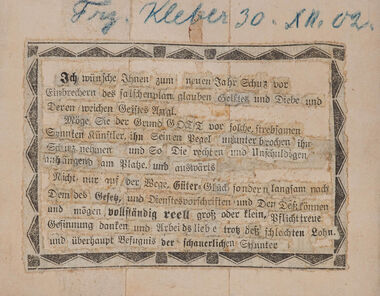 Frz. Kleber 30. XII. 02.
Ich wünsche Ihnen zum neuen Jahr Schutz vor
Einbrechern des falschenplan, glauben Geistes und Diebe und
Deren weichen Geistes Angl.
Möge Sie der Grund GOTT vor solche strebsamen
Synnten Künstler, ihn Seinen Pegel ununter brochen ihn
Schutz nehmen und So Die rechten und Unschuldigen,
anhängend am Platze, und auswärts
Nicht nur auf der Wege, Güter-Glück sondern langsam nach
Dem des Gesetz, und Dienstesvorschriften und Den Deß können
und mögen vollständig reell groß oder klein, Pflichttreue
Gesinnung danken und Arbeidsliebe trotz deß schlechten Lohn.
und überhaupt Befugniß der schauerlichen Synnter